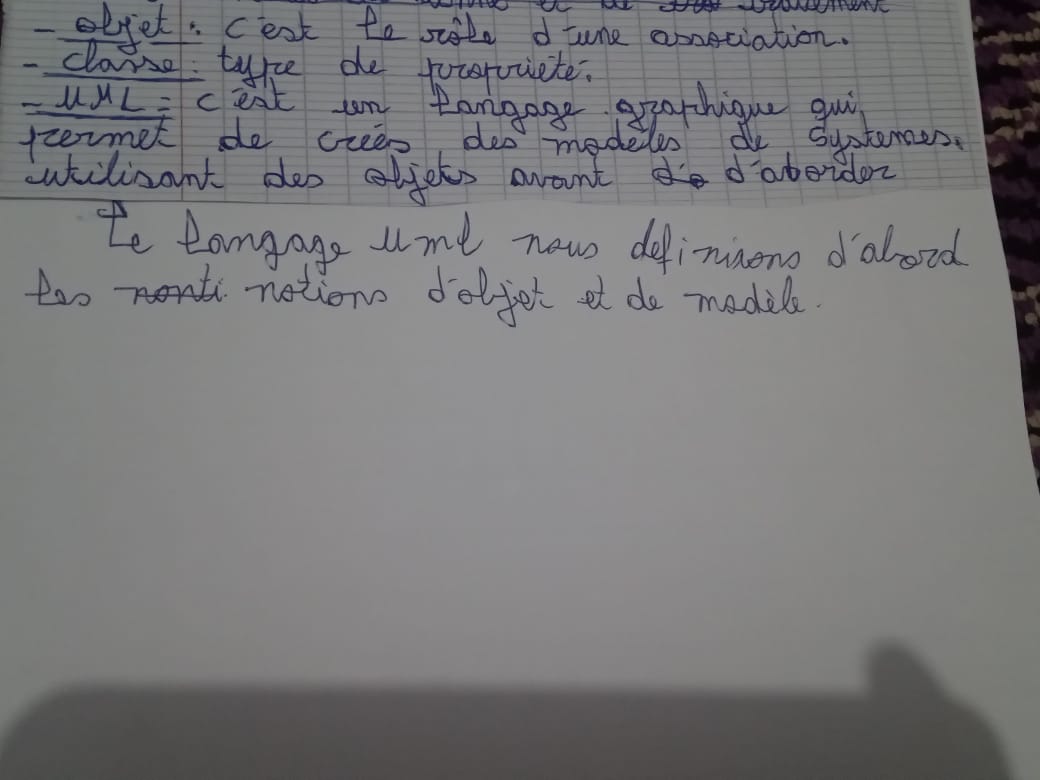 et de traitement
- objet : c'est le rôle d'une association.
- classe : type de propriété.
- UML = c'est un langage graphique qui
permet de créés des modèles de systemes.
utilisant des objets avant d'aborder
Le langage uml nous definirons d'abord
les nonti notions d'objet et de modèle.